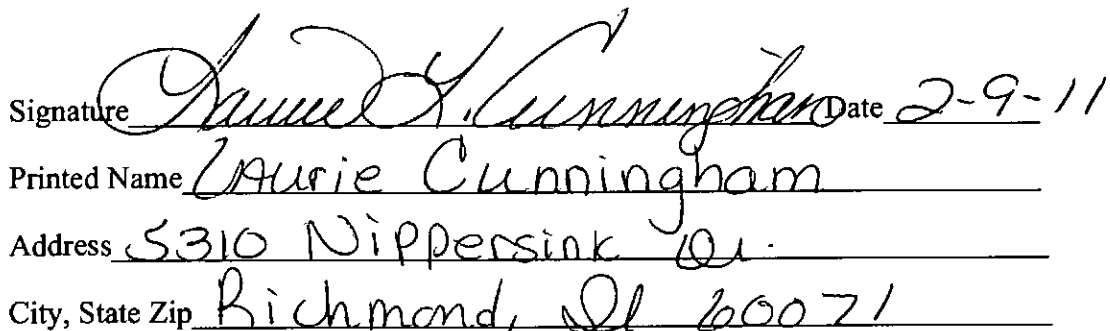 Signature Laurie L. Cunningham Date 2-9-11
Printed Name Laurie Cunningham
Address 5310 Nippersink Dr.
City, State Zip Richmond, Il 60071